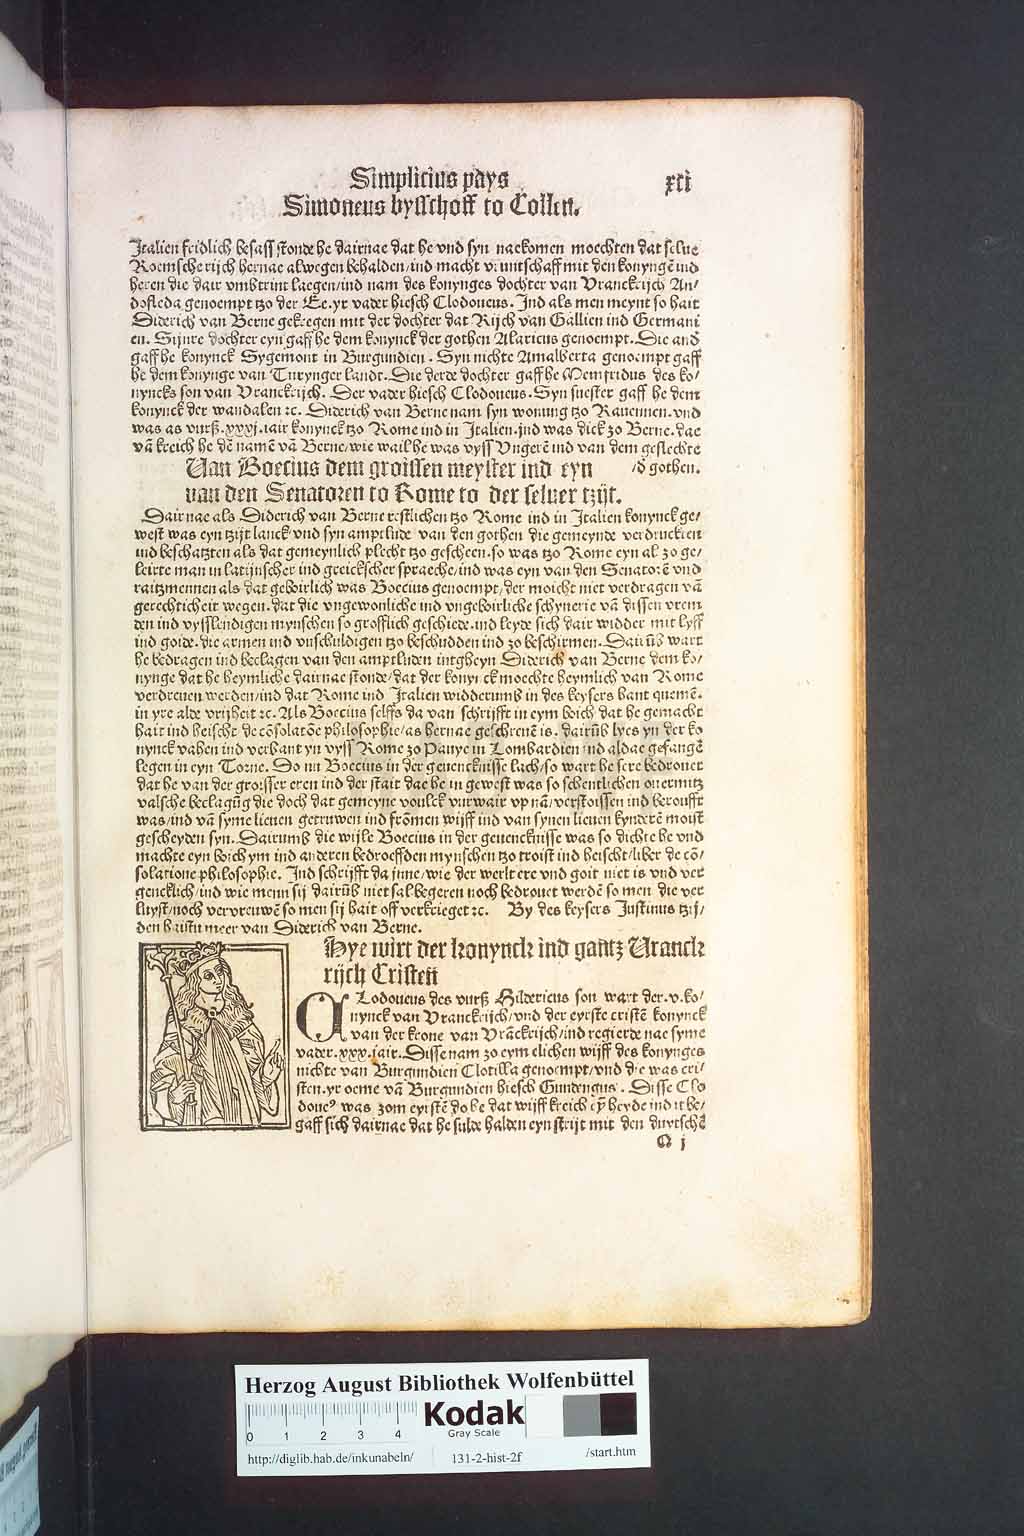 Simplicius pays
xci
Simoneus bysschoff to Collen.
Italien fridlich besass stonde he dairnae dat he vnd syn naekomen moechten dat selue
Roemsche rijch hernae alwegen behalden/ind macht vruntschaff mit den konyngē ind
heren die dair vmbtrint laegen/ind nam des konynges dochter van Vranckrijch An/
dosleda genoempt tzo der Ee.yr vader hiesch Clodoueus. Ind als men meynt so hait
Diderich van Berne gekregen mit der dochter dat Rijch van Gallien ind Germani
en. Sijnre dochter eyn gaff he dem konynck der gothen Alaricus genoempt. Die and̄
gaff he konynck Sygemont in Burgundien. Syn nichte Amalberta genoempt gaff
he dem konynge van Turynger landt. Die derde dochter gaff he Memfridus des ko/
nyncks son van Vranckrijch. Der vader hiesch Clodoueus. Syn suester gaff he dem
konynck der wandalen ⁊c. Diderich van Berne nam syn woning tzo Rauennen. vnd
was as vurß. xxxj. iair konynck tzo Rome ind in Italien. jnd was dick zo Berne. dae
vā kreich he dē namē vā Berne/wie wail he was vyss Vngerē ind van dem geslechte
/d̄ gothen.
Uan Boecius dem groissen meyster ind eyn
van den Senatoren to Rome to der seluer tzijt.
Dairnae als Diderich van Berne restlichen tzo Rome ind in Italien konynck ge/
west was eyn tzijt lanck vnd syn amptlude van den gothen die gemeynde verdruckten
ind beschatzten als dat gemeynlich plecht tzo gescheen. so was tzo Rome eyn al zo ge/
leirte man in latijnscher ind greickscher spraeche/ind was eyn van den Senatorē vnd
raitzmennen als dat geboirlich was Boecius genoempt/der moicht niet verdragen vā
gerechticheit wegen. dat die vngewonliche ind vngeboirliche schynerie vā dissen vrem
den ind vysslendigen mynschen so grofflich geschiede. ind leyde sich dair widder mit lyff
ind goide. die armen ind vnschuldigen tzo beschudden ind zo beschirmen. Dairūb wart
he bedragen ind beclagen van den amptluden intgheyn Diderich van Berne dem ko/
nynge dat he heymliche dairnae stonde/dat der konynck moechte heymlich van Rome
verdreuen werden/ind dat Rome ind Italien widderumb in des keysers hant quemē.
in yre alde vrijheit ⁊c. Als Boecius selffs da van schrijfft in eym boich dat he gemacht
hait ind heischt de cōsolatōe philosophie/as hernae geschreuē is. dairūb lyes yn der ko
nynck vahen ind verbant yn vyss Rome zo Pauye in Lombardien ind aldae gefangē
legen in eyn Torne. Do nu Boecius in der geuencknisse lach/so wart he sere bedrouet
dat he van der groisser eren ind der stait dae he in gewest was so schentlichen ouermitz
valsche beclagūg die doch dat gemeyne voulck vurwair vp nā/verstoissen ind beroufft
was/ind vā syme lieuen getruwen ind frōmen wijff ind van synen lieuen kynderē moist
gescheyden syn. Dairumb die wijle Boecius in der geuencknisse was so dichte he vnd
machte eyn boich ym ind anderen bedroeffden mynschen tzo troist ind heischt/liber de cō/
solatione philosophie. Ind schrijfft da jnne/wie der werlt ere vnd goit niet is vnd ver
gencklich/ind wie menn sij dairūb niet sal begeren noch bedrouet werdē so men die ver
luyst/noch vervreuwē so men sij hait off verkrieget ⁊c. By des keysers Justinus tzij/
den vijstu meer van Diderich van Berne.
Hye wirt der konynck ind gantz Uranck
rijch Cristen
CLodoueus des vurß Hildericus son wart der .v. ko/
nynck van Vranckrijch/vnd der eyrste cristē konynck
van der krone van Vrāckrijch/ind regierde nae syme
vader. xxx. jair. Disse nam zo eym elichen wijff des konynges
nichte van Burgundien Clotilla genoempt/vnd die was cri/
sten. yr oeme vā Burgundien hiesch Gundengus. Disse Clo
doueꝰ was zom eyrstē do he dat wijff kreich eȳ heyde ind it be/
gaff sich dairnae dat he sulde halden eyn strijt mit den duytschē
Q j
Herzog August Bibliothek Wolfenbüttel
0 1 2 3 4
Kodak
Gray Scale
http://diglib.hab.de/inkunabeln/
131-2-hist-2f
/start.htm